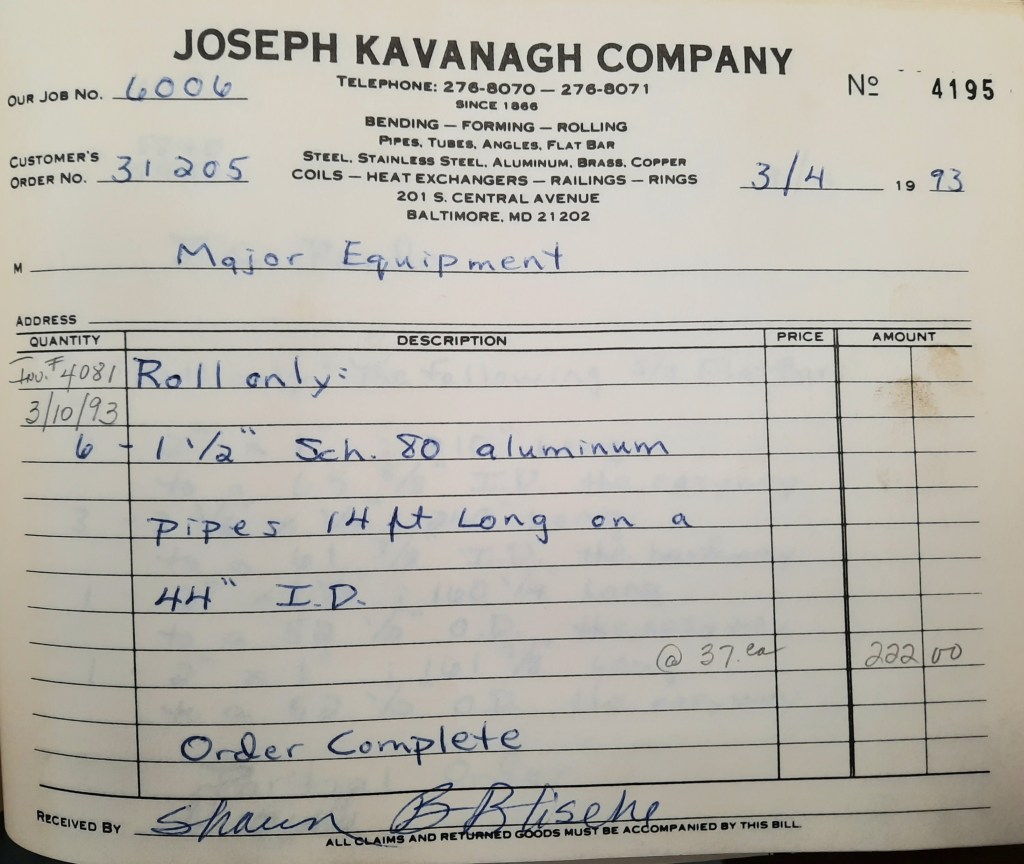 JOSEPH KAVANAGH COMPANY
TELEPHONE: 276-8070 — 276-8071
SINCE 1866
BENDING — FORMING — ROLLING
PIPES, TUBES, ANGLES, FLAT BAR
STEEL, STAINLESS STEEL, ALUMINUM, BRASS, COPPER
COILS — HEAT EXCHANGERS — RAILINGS — RINGS
201 S. CENTRAL AVENUE
BALTIMORE, MD 21202
Nº 4195
OUR JOB NO. 6006
CUSTOMER'S
ORDER NO. 31205
3/4 19 93
M Major Equipment
ADDRESS
QUANTITY DESCRIPTION PRICE AMOUNT
Inv. #4081 Roll only:
3/10/93
6 - 1 1/2" Sch. 80 aluminum
pipes 14 ft Long on a
44" I.D.
@ 37. ea 222 00
Order Complete
RECEIVED BY Shaun B
ALL CLAIMS AND RETURNED GOODS MUST BE ACCOMPANIED BY THIS BILL